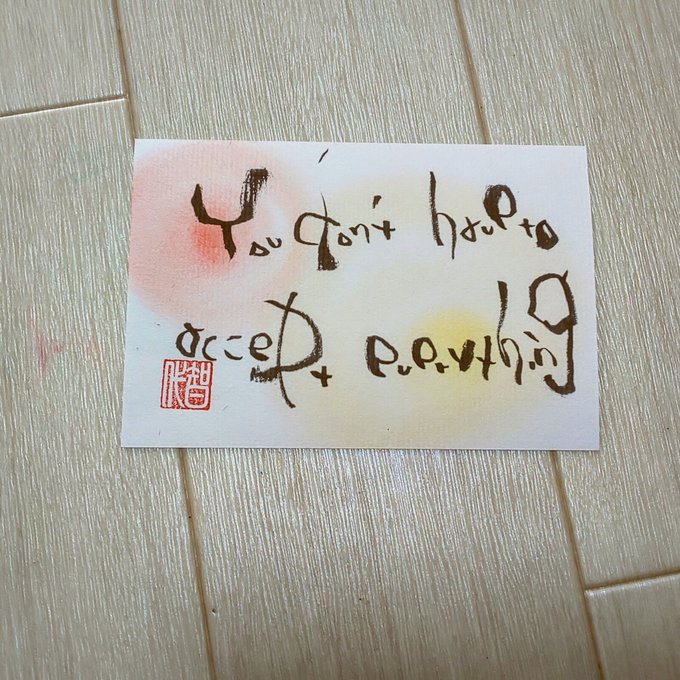 You don't have to
accept everything
智代